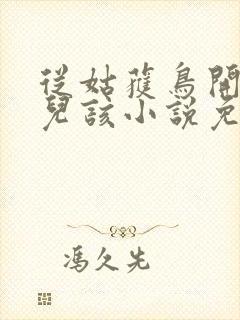 從姑獲鳥開
兒該小說免
馮久先